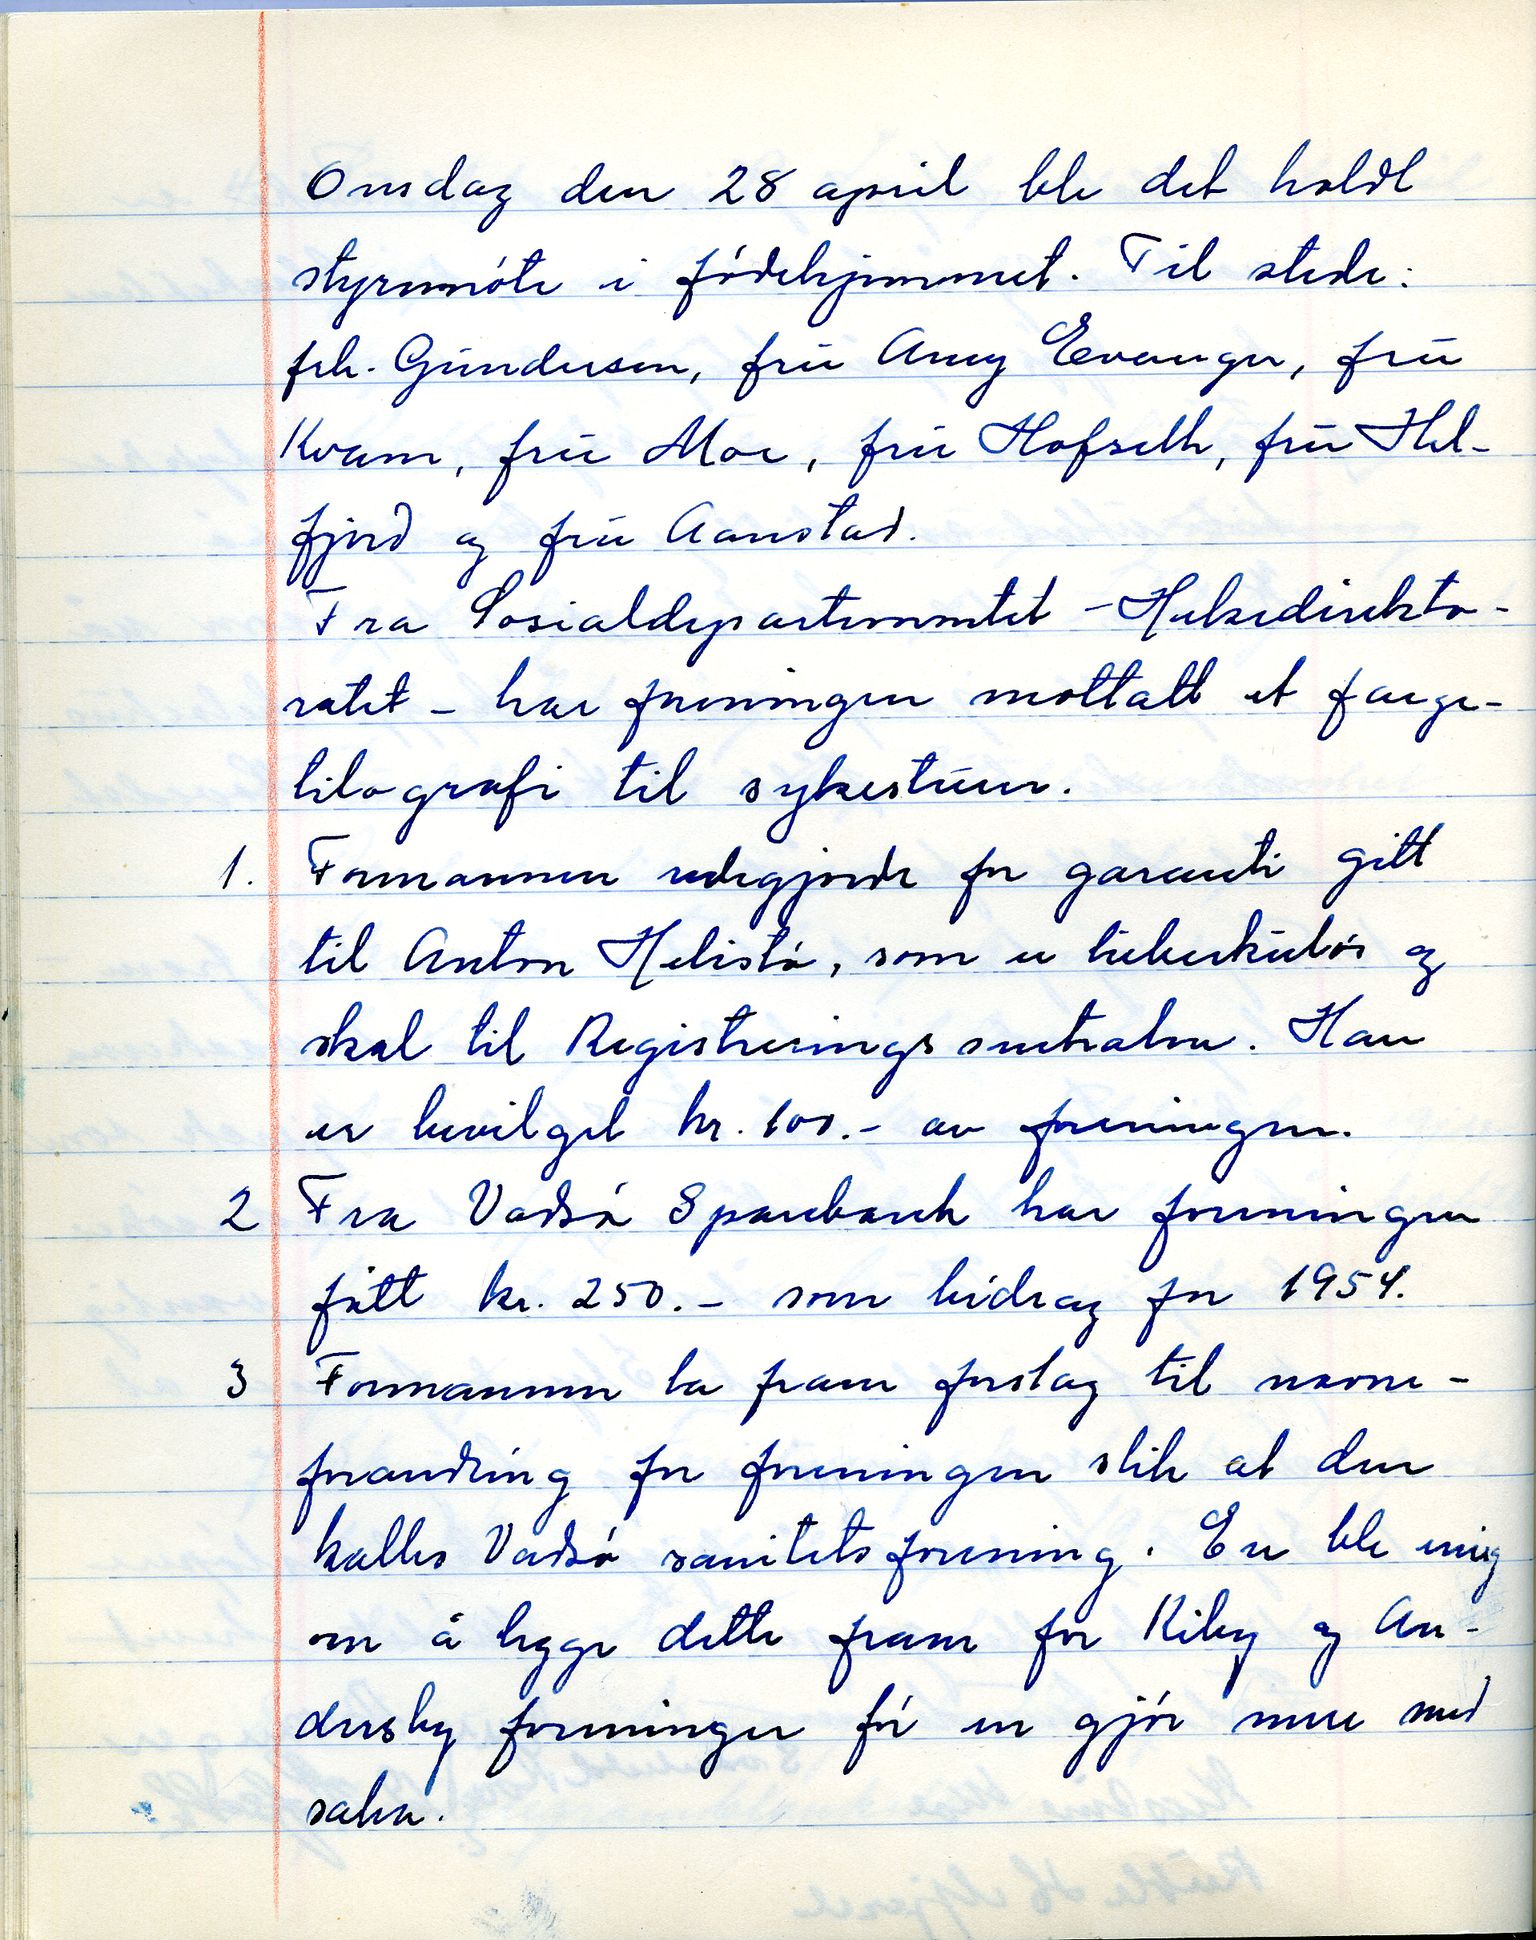 Onsdag den 28 april ble det holdt
styremöte i födehjemmet. Til stede:
frk. Gundersen, fru Amy Evanger, fru
Kvam, fru Moe, fru Hofseth, fru Hel-
fjord og fru Aanstad.
Fra Sosialdepartementet - Helsedirekto-
ratet - har foreningen mottatt et farge-
litografi til sykestuen.
1. Formannen redegjorde for garanti gitt
til Anton Helistö, som er tuberkulös og
skal til Registreringssentralen. Han
er bevilget kr. 100.- av foreningen.
2 Fra Vadsö Sparebank har foreningen
fått kr. 250.- som bidrag for 1954.
3 Formannen la fram forslag til navne-
forandring for foreningen slik at den
kalles Vadsö sanitetsforening. En ble enig
om å legge dette fram for Kiby og An-
dersby foreninger för en gjör mere med
saken.